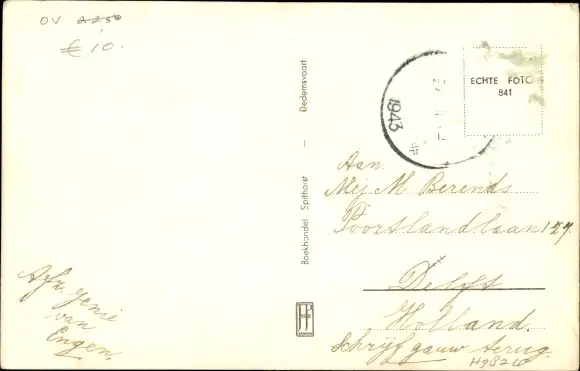 OV 2250
€ 10.
ECHTE FOTO
841
1943
Boekhandel Spithorst — Dedemsvaart
Aan.
Mej. M. Berends
Poortlandlaan 127.
Delft
Holland.
Schrijf gauw terug.
H982
Afz. Jenie
van
Engen.